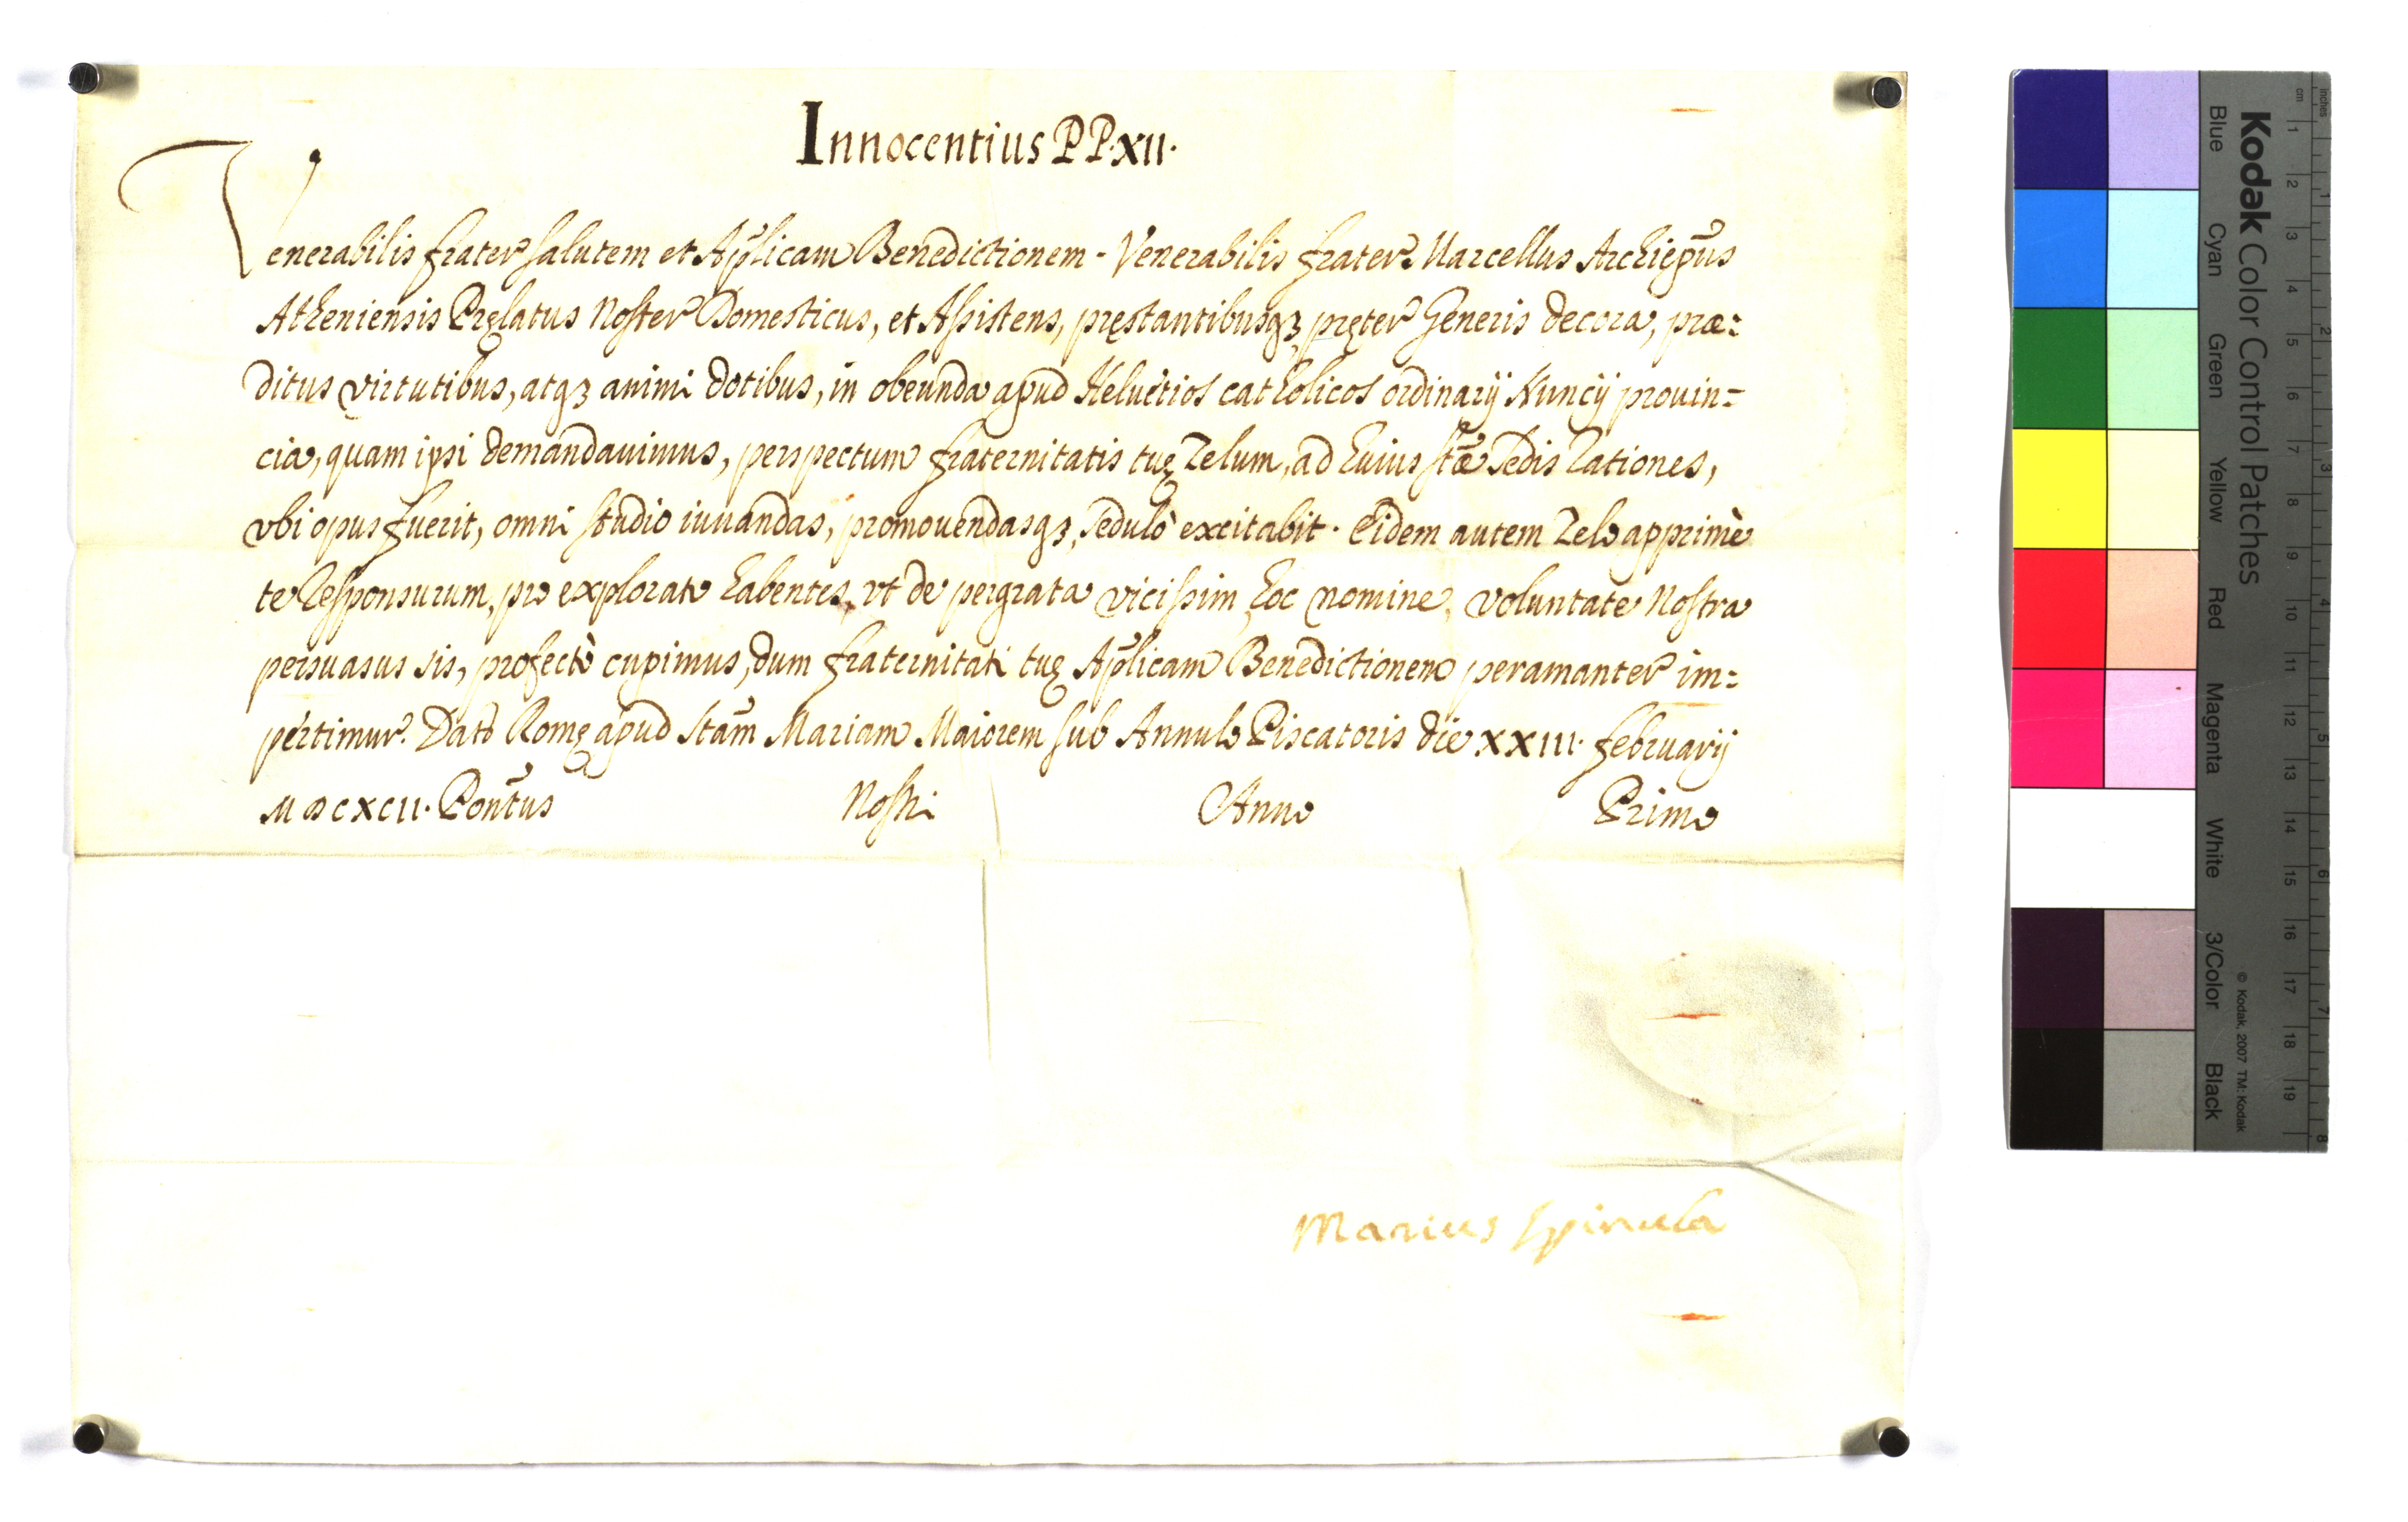 Innocentius PP. XII.
Venerabilis frater salutem et Aplicam Benedictionem - Venerabilis frater Marcellus Archiepus
Atheniensis Pręlatus Noster Domesticus, et Assistens, pręstantibusq3 pręter Generis decora, præ=
ditus virtutibus, atq3 animi dotibus, in obeunda apud Heluetios catholicos ordinarij Nuncij prouin=
cia, quam ipsi demandauimus, perspectum fraternitatis tuę Zelum, ad huius stæ Sedis Rationes,
vbi opus fuerit, omni studio iuuandas, promouendasq3, sedulò excitabit. Eidem autem Zelo apprimè
te Responsurum, pro explorato habentes, vt de pergrata vicissim hoc nomine, voluntate Nostra
persuasus sis, profectò cupimus, dum fraternitati tuę Aplicam Benedictionem peramanter im=
pertimur. Dat Romę apud Stam Mariam Maiorem sub Annulo Piscatoris die XXIII. februarij
MDCXCII. Pontus Nostri Anno Primo
Marius Spinula
Kodak Color Control Patches
© Kodak, 2007 TM: Kodak
Blue Cyan Green Yellow Red Magenta White 3/Color Black
cm 1 2 3 4 5 6 7 8 9 10 11 12 13 14 15 16 17 18 19
inches 1 2 3 4 5 6 7 8